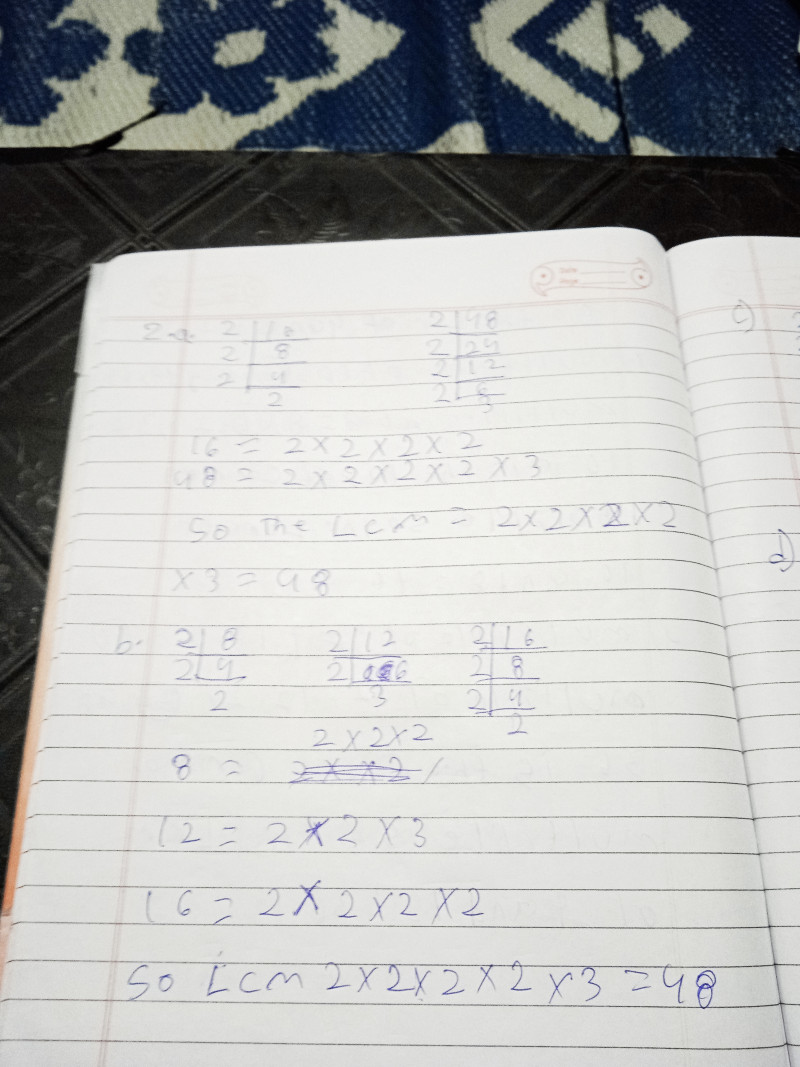 2.a. 2 | 16 2 | 48
2 | 8 2 | 24
2 | 4 2 | 12
2 2 | 6
3
16 = 2 × 2 × 2 × 2
48 = 2 × 2 × 2 × 2 × 3
So the Lcm = 2 × 2 × 2 × 2
× 3 = 48
b. 2 | 8 2 | 12 2 | 16
2 | 4 2 | 6 2 | 8
2 3 2 | 4
2
2 × 2 × 2
8 =
12 = 2 × 2 × 3
16 = 2 × 2 × 2 × 2
So Lcm 2 × 2 × 2 × 2 × 3 = 48
c)
d)